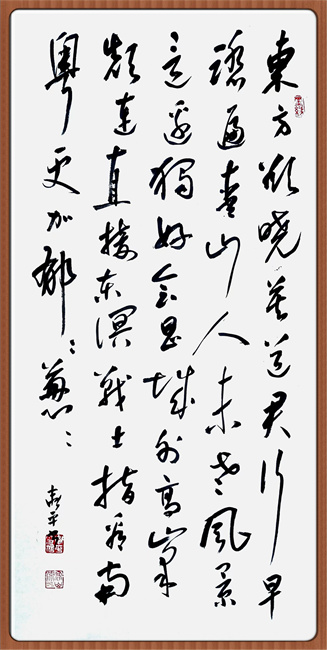 東方欲曉莫道君行早
踏遍青山人未老風景
這邊獨好會昌城外高峰
顛連直接东溟戰士指看南
粵更加郁々葱々